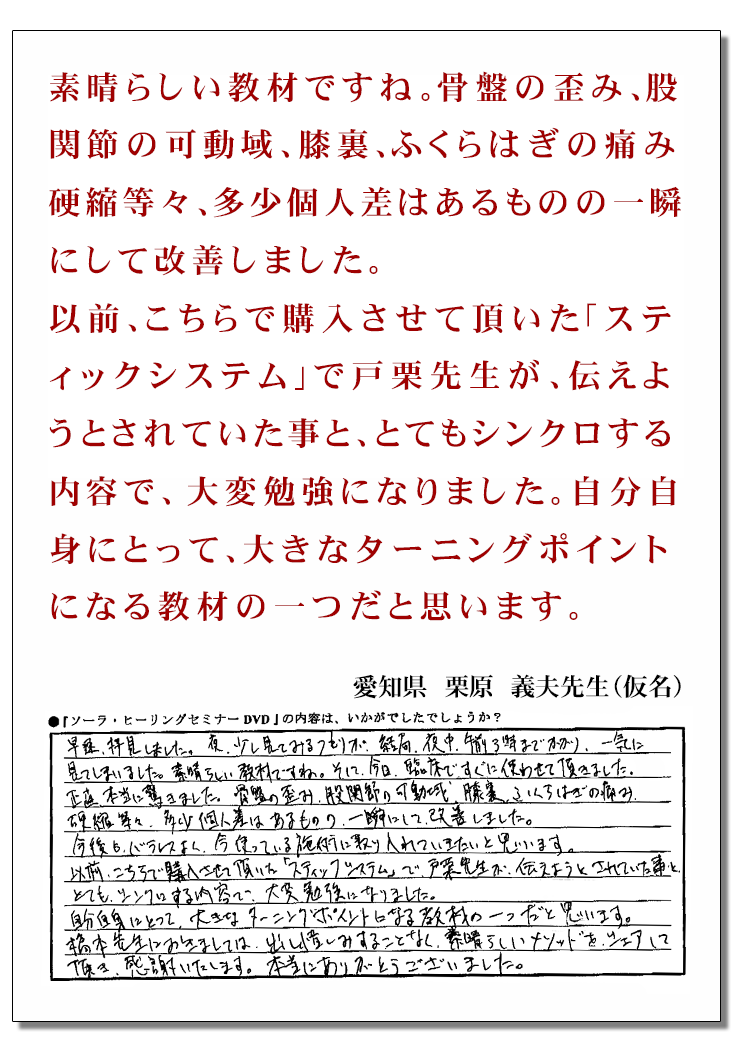 素晴らしい教材ですね。骨盤の歪み、股
関節の可動域、膝裏、ふくらはぎの痛み
硬縮等々、多少個人差はあるものの一瞬
にして改善しました。
以前、こちらで購入させて頂いた「ステ
ィックシステム」で戸栗先生が、伝えよ
うとされていた事と、とてもシンクロする
内容で、大変勉強になりました。自分自
身にとって、大きなターニングポイント
になる教材の一つだと思います。
愛知県 栗原 義夫先生(仮名)
●『ソーラ・ヒーリングセミナーDVD』の内容は、いかがでしたでしょうか?
早速、拝見しました。夜、少し見てみるつもりが、結局、夜中、午前3時までかかり、一気に
見てしまいました。素晴らしい教材ですね。そして、今日、臨床ですぐに使わせて頂きました。
正直、本当に驚きました。骨盤の歪み、股関節の可動域、膝裏、ふくらはぎの痛み、
硬縮等々、多少個人差はあるものの、一瞬にして改善しました。
今後も、バランスよく、今使っている施術に取り入れていきたいと思います。
以前、こちらで購入させて頂いた「スティックシステム」で、戸栗先生が、伝えようとされていた事と、
とても、シンクロする内容で、大変勉強になりました。
自分自身にとって、大きなターニングポイントになる教材の一つだと思います。
橋本先生におきましては、出し惜しみすることなく、素晴らしいメソッドを、シェアして
頂き、感謝いたします。本当にありがとうございました。